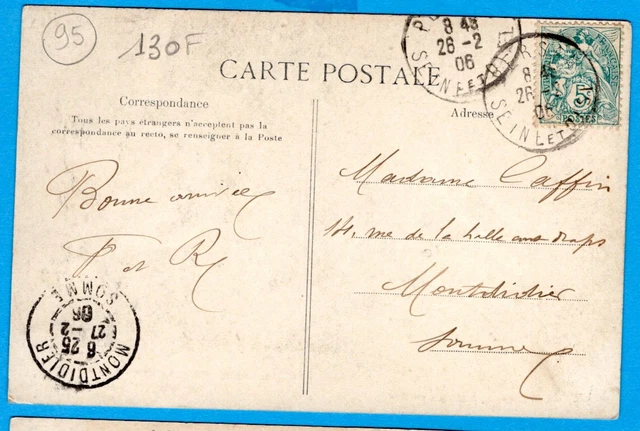 95
130F
CARTE POSTALE
Correspondance
Tous les pays étrangers n'acceptent pas la
correspondance au recto, se renseigner à la Poste
Adresse
8 45
26 -2
06
SEINE ET
26
06
SEINE ET
15
POSTES
Bonne arrivée
P et R
Madame Caffin
14, rue de la halle aux draps
Montdidier
Somme
MONTDIDIER
6 25
27 -2
06
SOMME